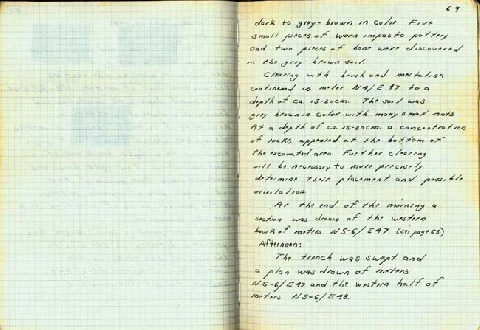 69
dark to grey-brown in color. Five
small pieces of worn impasto pottery
and two pieces of bone were discovered
in the grey brown soil.
Clearing with brush and
continued in meter N4/E47 to a
depth of ca. 15-20cm. The soil was
grey brown in color with many small roots.
At a depth of ca. 15-20cm a concentration
of rocks appeared at the bottom of
the excavated area. Further clearing
will be necessary to more precisely
determine their placement and possible
orientation.
At the end of the morning a
section was drawn of the western
baulk of meters N5-6/E47 (see page 65)
Afternoon:
The trench was swept and
a plan was drawn of meters
N5-6/E47 and the western half of
meters N5-6/E48.